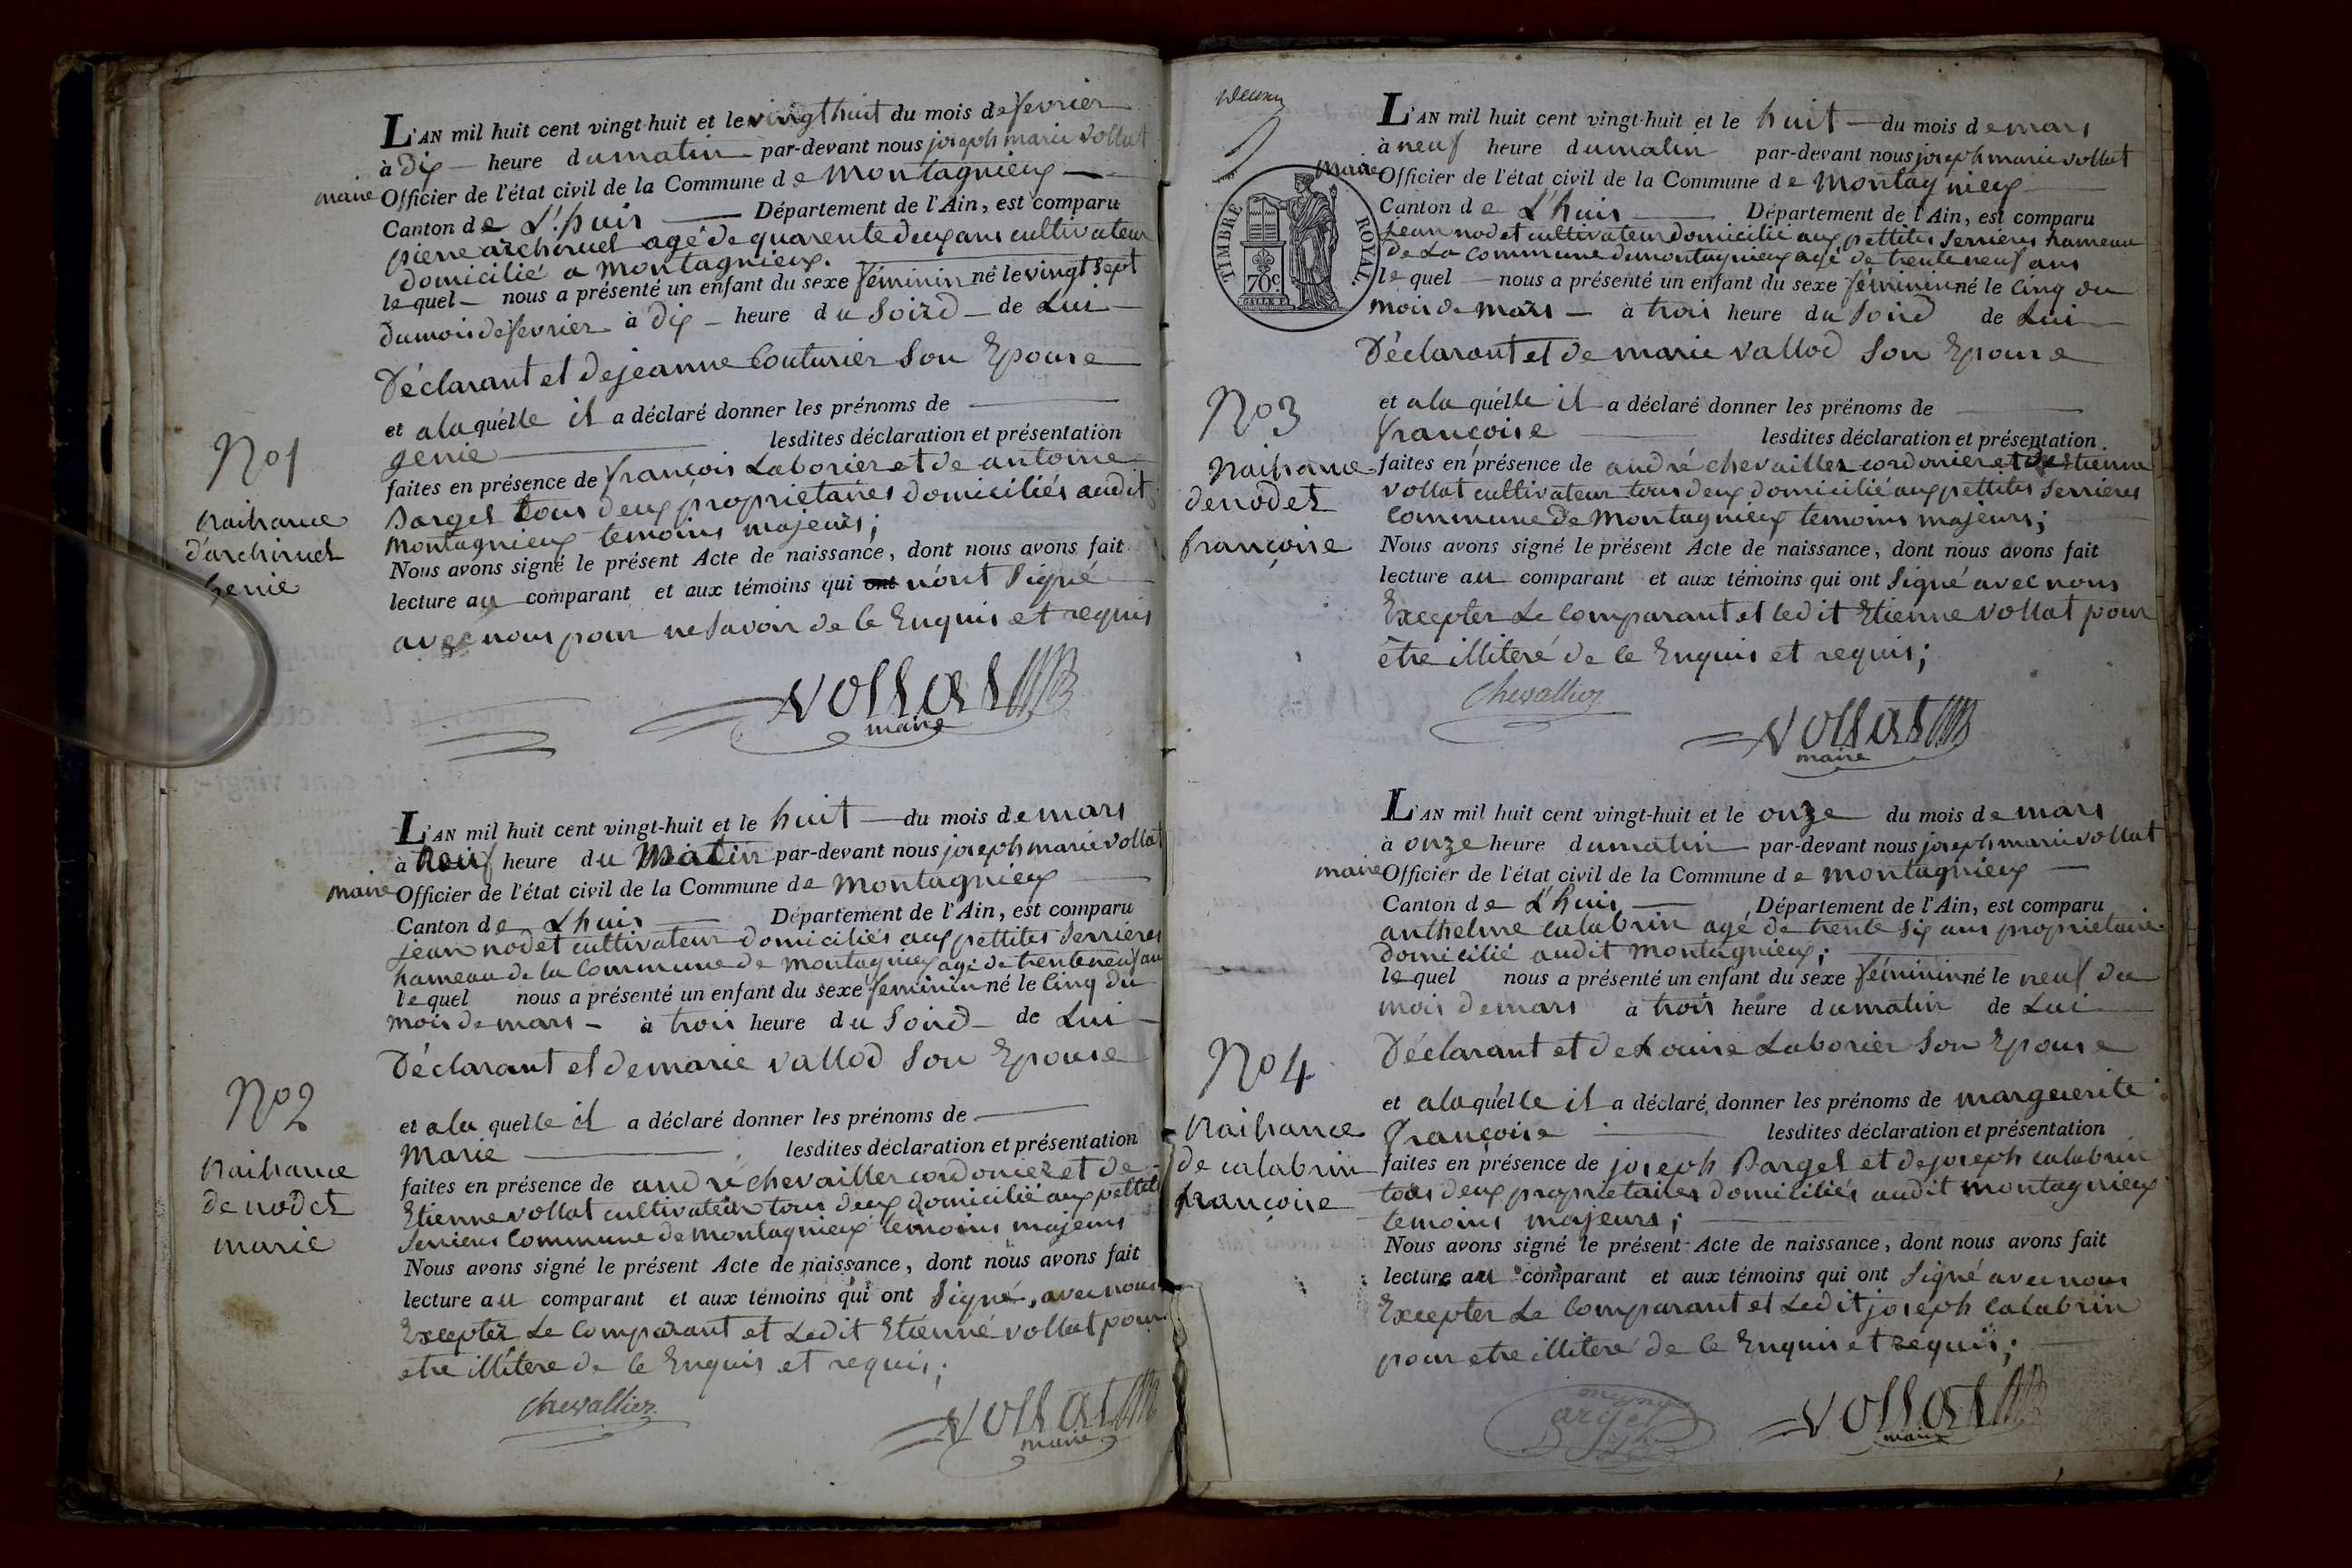 L'AN mil huit cent vingt-huit et le vingt huit du mois de fevrier
à dix heure du matin par-devant nous joseph marie vollat
maire Officier de l'état civil de la Commune de Montagnieux
Canton de L'huis Département de l'Ain, est comparu
pierre archiruel agé de quarente deux ans cultivateur
domicilié a Montagnieux.
lequel nous a présenté un enfant du sexe féminin né le vingt sept
du mois de fevrier à dix heure du Soird de Lui
Déclarant et de jeanne Couturier Son Epouse
et a la quélle il a déclaré donner les prénoms de
genie lesdites déclaration et présentation
faites en présence de françois Laborier et de antoine
Bargel tous deux proprietaires domiciliés audit
Montagnieux temoins majeurs;
Nous avons signé le présent Acte de naissance, dont nous avons fait
lecture au comparant et aux témoins qui ont n'ont Signé
avec nous pour ne Savoir de ce Enquis et requis
vollat
maire
No 1
Naihance
d'archiruel
genie
L'AN mil huit cent vingt-huit et le huit du mois de mars
à Neuf heure du Matin par-devant nous joseph marie vollat
maire Officier de l'état civil de la Commune de Montagnieux
Canton de Lhuis Département de l'Ain, est comparu
jean nodet cultivateur domiciliés aux pettites Serrieres
hameau de la Commune de Montagnieux agé de trente neuf an
lequel nous a présenté un enfant du sexe feminin né le Cinq du
mois de mars à trois heure du Soird de Lui
Déclarant et de marie vallod Son Epouse
et a la quelle il a déclaré donner les prénoms de
Marie lesdites déclaration et présentation
faites en présence de andré chevailler cordonier et de
Etienne vollat cultivateur tous deux domicilié aux pettites
Serrieres Commune de Montagnieux temoins majeurs
Nous avons signé le présent Acte de naissance, dont nous avons fait
lecture au comparant et aux témoins qui ont Signé, avec nous
Excepter Le Comparant et Ledit Etienne vollat pour
etre illitere de ce Enquis et requis;
chevallier
vollat
maire
No 2
Naihance
de nodet
marie
L'AN mil huit cent vingt-huit et le huit du mois de mars
à neuf heure du matin par-devant nous joseph marie vollat
Maire Officier de l'état civil de la Commune de Montagnieux
Canton de L'huis Département de l'Ain, est comparu
jean nodet cultivateur domicilié aux pettites Serrieres hameau
de La Commune de montagnieux agé de trente neuf ans
lequel nous a présenté un enfant du sexe féminin né le Cinq du
mois de mars à trois heure du Soird de Lui
Déclarant et de marie vallod Son Epouse
et a la quélle il a déclaré donner les prénoms de
françoise lesdites déclaration et présentation
faites en présence de andré chevailler cordonier et de Etienne
vollat cultivateur tous deux domicilié aux pettites Serrieres
Commune de Montagnieux temoins majeurs;
Nous avons signé le présent Acte de naissance, dont nous avons fait
lecture au comparant et aux témoins qui ont Signé avec nous
Excepter Le Comparant et ledit Etienne vollat pour
être illiteré de ce Enquis et requis;
chevallier
vollat
maire
TIMBRE ROYAL.
70 c.
No 3
Naihance
de nodet
françoise
L'AN mil huit cent vingt-huit et le onze du mois de mars
à onze heure du matin par-devant nous joseph marie vollat
maire Officier de l'état civil de la Commune de montagnieux
Canton de L'huis Département de l'Ain, est comparu
anthelme calabrin agé de trente Six ans proprietaire
domicilié audit Montagnieux;
lequel nous a présenté un enfant du sexe féminin né le neuf du
mois de mars à trois heure du matin de Lui
Déclarant et de Louise Laborier Son Epouse
et a la quélle il a déclaré donner les prénoms de marguerite
françoise lesdites déclaration et présentation
faites en présence de joseph Bargel et de joseph calabrin
tous deux proprietaires domiciliés audit montagnieux
temoins majeurs;
Nous avons signé le présent Acte de naissance, dont nous avons fait
lecture au comparant et aux témoins qui ont Signé avec nous
Excepter Le Comparant et Ledit joseph Calabrin
pour etre illiteré de ce Enquis et requis;
vollat
maire
No 4
Naihance
de calabrin
françoise